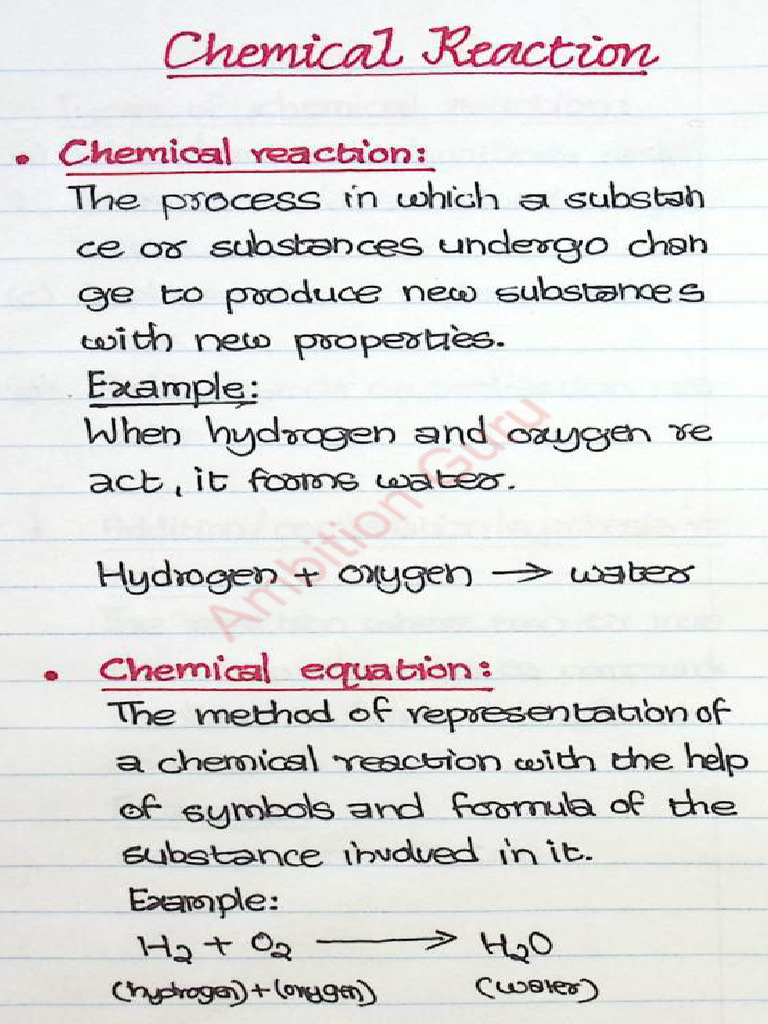 Chemical Reaction
• Chemical reaction:
The process in which a substan
ce or substances undergo chan
ge to produce new substances
with new properties.
Example:
When hydrogen and oxygen re
act, it forms water.
Hydrogen + oxygen → water
• Chemical equation:
The method of representation of
a chemical reaction with the help
of symbols and formula of the
substance involved in it.
Example:
H₂ + O₂ ⟶ H₂O
(hydrogen) + (oxygen) (water)
Ambition Guru